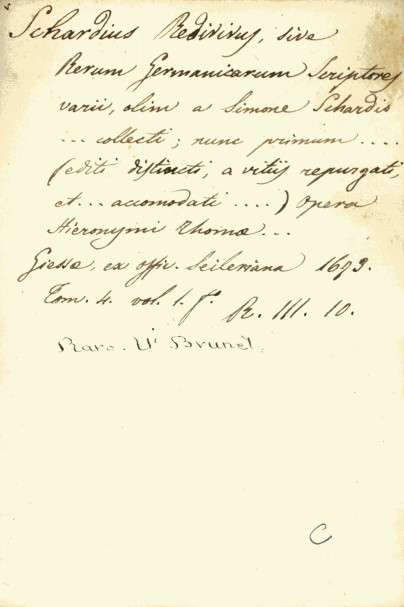 Schardius Redivivus, sive
Rerum Germanicarum Scriptores
varii, olim a Simone Schardio
... collecti; nunc primum ....
(editi distincti, a vitiis repurgati,
et... accomodati ....) Opera
Hieronymi Thomæ...
Giessæ, ex offic. Seileriana 1673.
Tom. 4. vol. 1. fº. R. III. 10.
Raro. Vi Brunet.
C